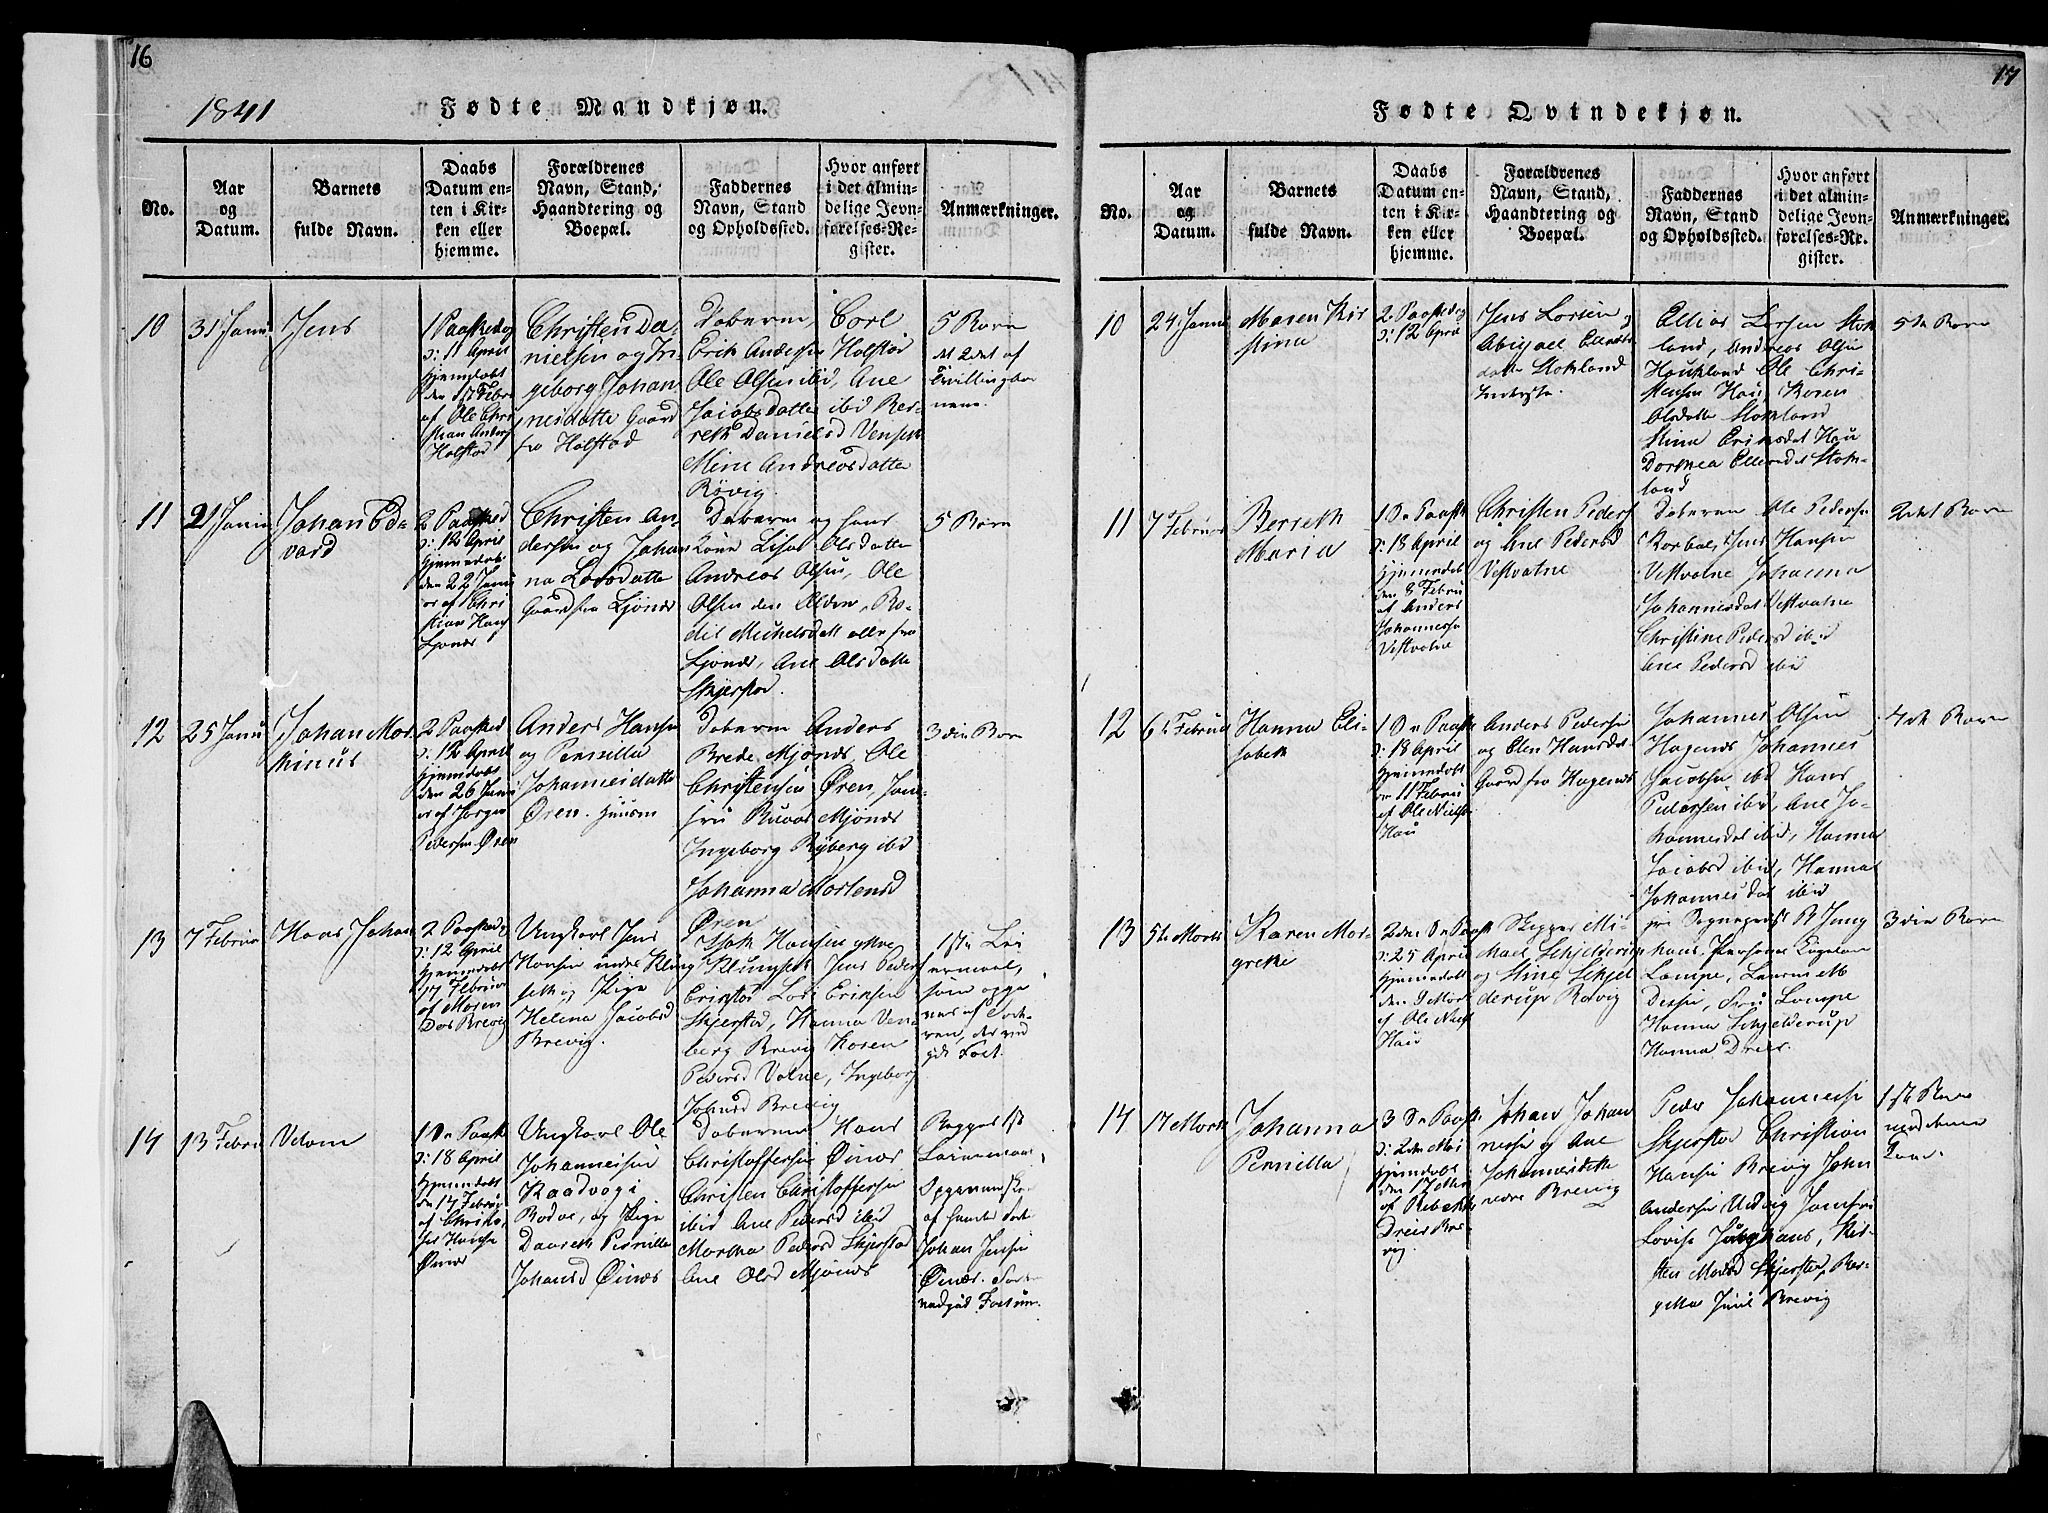 16
1841
Fødte Mandkjøn.
No.
Aar
og
Datum.
Barnets
fulde Navn.
Daabs
Datum en-
ten i Kir-
ken eller
hjemme.
Forældrenes
Navn, Stand,
Haandtering og
Boepæl.
Faddernes
Navn, Stand
og Opholdssted.
Hvor anført
i det almin-
delige Jevn-
førelses-Re-
gister.
Anmærkninger.
10
31 Janu
Jens
1 Paaskedg
d: 11 April
hjemdøbt
den 17 Febr
af Ole Chri
stian Anders
Holstad
Christen Da-
nielsen og In-
geborg Johan
nesdatte Gaard
fra Holstad
Erik Andersen Holstad
Ole Olsen ibid, Ane
Jacobsdatter ibid Ber-
reth Danielsd Venset
Mine Andreasdatter
Røvig
5 Barn
det 2det af
Tvillingbør
nene.
11
21 Janu
Johan Ed-
vard
2 Paasked
d: 12 April
hjemmedøbt
den 22 Janu
ar af Chri
stian Hans
Ljønes
Christen An-
dersen og Johan
na Larsdatte
Gaard fra Ljønes
Kone Lisa Olsdatter
Andreas Olsen, Ole
Olsen den Ældre, Bo-
dil Mikelsdatt alle fra
Ljønes, Ane Olsdatte
Skjerstad.
5 Barn
12
25 Janu
Johan Mar
tinus
2 Paasked
d: 12 April
hjemdøbt
den 26 Janu
ar af Jørgen
Pedersen Øren
Anders Hansen
og Pernilla
Johannesdatte
Øren. Huusm
Anders
Brede Mjønes, Ole
Christensen Øren, Jom-
fru Mjønes
Ingeborg Ryberg ibid
Johanna Mortensd
Øren
3die Barn
13
7 Februar
Hans Johan
2 Paaskedg
d: 12 April
hjemdøbt
17 Februar
af Maren
Brevig
Ungkarl Jens
Hansen Klung
set og Pige
Helena Jacobsd
Brevig.
Isak Hansen
Klungset Jens Peders
Skjerstad, Hanna Ven-
berg Brevig Karen
Pedersd Valne, Ingeborg
Johnsd Brevig
1ste Lei
ermaal,
som opgi
ves af
14
13 Febru
1 S. e Paask
d: 18 April
hjemdøbt
den 17 Februar
af Christo
fer Hansen
Øines
Ungkarl Ole
Johannesen
Bodøe, og Pige
Daareth Pernille
Johansd Øines
Hans
Christoffersen Øines
Christen Christoffersen
ibid Ane Pedersd ibid
Martha Pedersd Skjerstad
Ane Olsd Mjønes
Begges 1st
Leiermaal,
Johan Jensen
Øines.
17
Fødte Qvindekjøn.
No.
Aar
og
Datum.
Barnets
fulde Navn.
Daabs
Datum en-
ten i Kir-
ken eller
hjemme.
Forældrenes
Navn, Stand,
Haandtering og
Boepæl.
Faddernes
Navn, Stand
og Opholdssted.
Hvor anført
i det almin-
delige Jevn-
førelses-Re-
gister.
Anmærkninger.
10
24 Janu
Maren Kir
stina
2 Paaskedg
d: 12 April
Jens Larsen og
Abigael Ellias
datte Stokland
Inderste.
Ellias Larsen Stok
land, Andreas Olsen
Haukland Ole Chri-
stensen Hau, Karen
Olsdatte Stokland
Stina Eriksdat Hau
Dorthea Elliasdat Stok-
land
5te Barn
11
7 Februar
Berreth
Maria
1 S. e Paask
d: 18 April
hjemmedøbt
den 8 Febru
af Anders
Johannesse
Vestvatne
Christen Peders
og Ane Pedersd
Vestvatne
Ole Pedersen
Jens Hansen
Vestvatne Johanna
Johannesdat Vestvatne
Christine Pedersd ibid
Ane Pedersd ibid
2det Barn
12
6te Februar
Hanna Eli-
sabeth
1 S. e Paask
d: 18 April
hjemmedøbt
11 Febru
af Ole Nielse
Hau
Anders Pedersen
og Elen Hansdat
Gaard fra Hagenes
Johannes Olsen
Hagenes Johannes
Jacobsen ibid Hans
Pedersen ibid, Ane Jo-
hannesdat ibid, Hanna
Jacobsd ibid, Hanna
Johannesdat ibid
4de Barn
13
5te Marts
Karen Mar-
grethe
2den S. e Paask
d: 25 April
hjemmedøbt
den 9 Mar
af Ole Niels
Hau
Skipper Mi-
kael Schjelderup
og Stine Schjel
derup Røvig
Sognepræst B Jung
hans,
Lampe, Laurus M
Lampe
Hanna Schjelderup
Hanna Dreier.
3die Barn
14
17 Marts
Johanna
Pernilla
3 S. e Paask
d: 2den Mai
hjemdøbt
af Rebekka
Dreier Bre
vig
Johan Johan
nesen og Ane
Johannesdatte
nedre Brevig
Peder Johannesen
Skjerstad Christian
Hansen Brevig John
Andersen Utvig Jomfru
Lovise Junghans, Kir-
sten Skjerstad, Ber-
gitta Juul Brevig
1ste Barn
med denne
Kone.